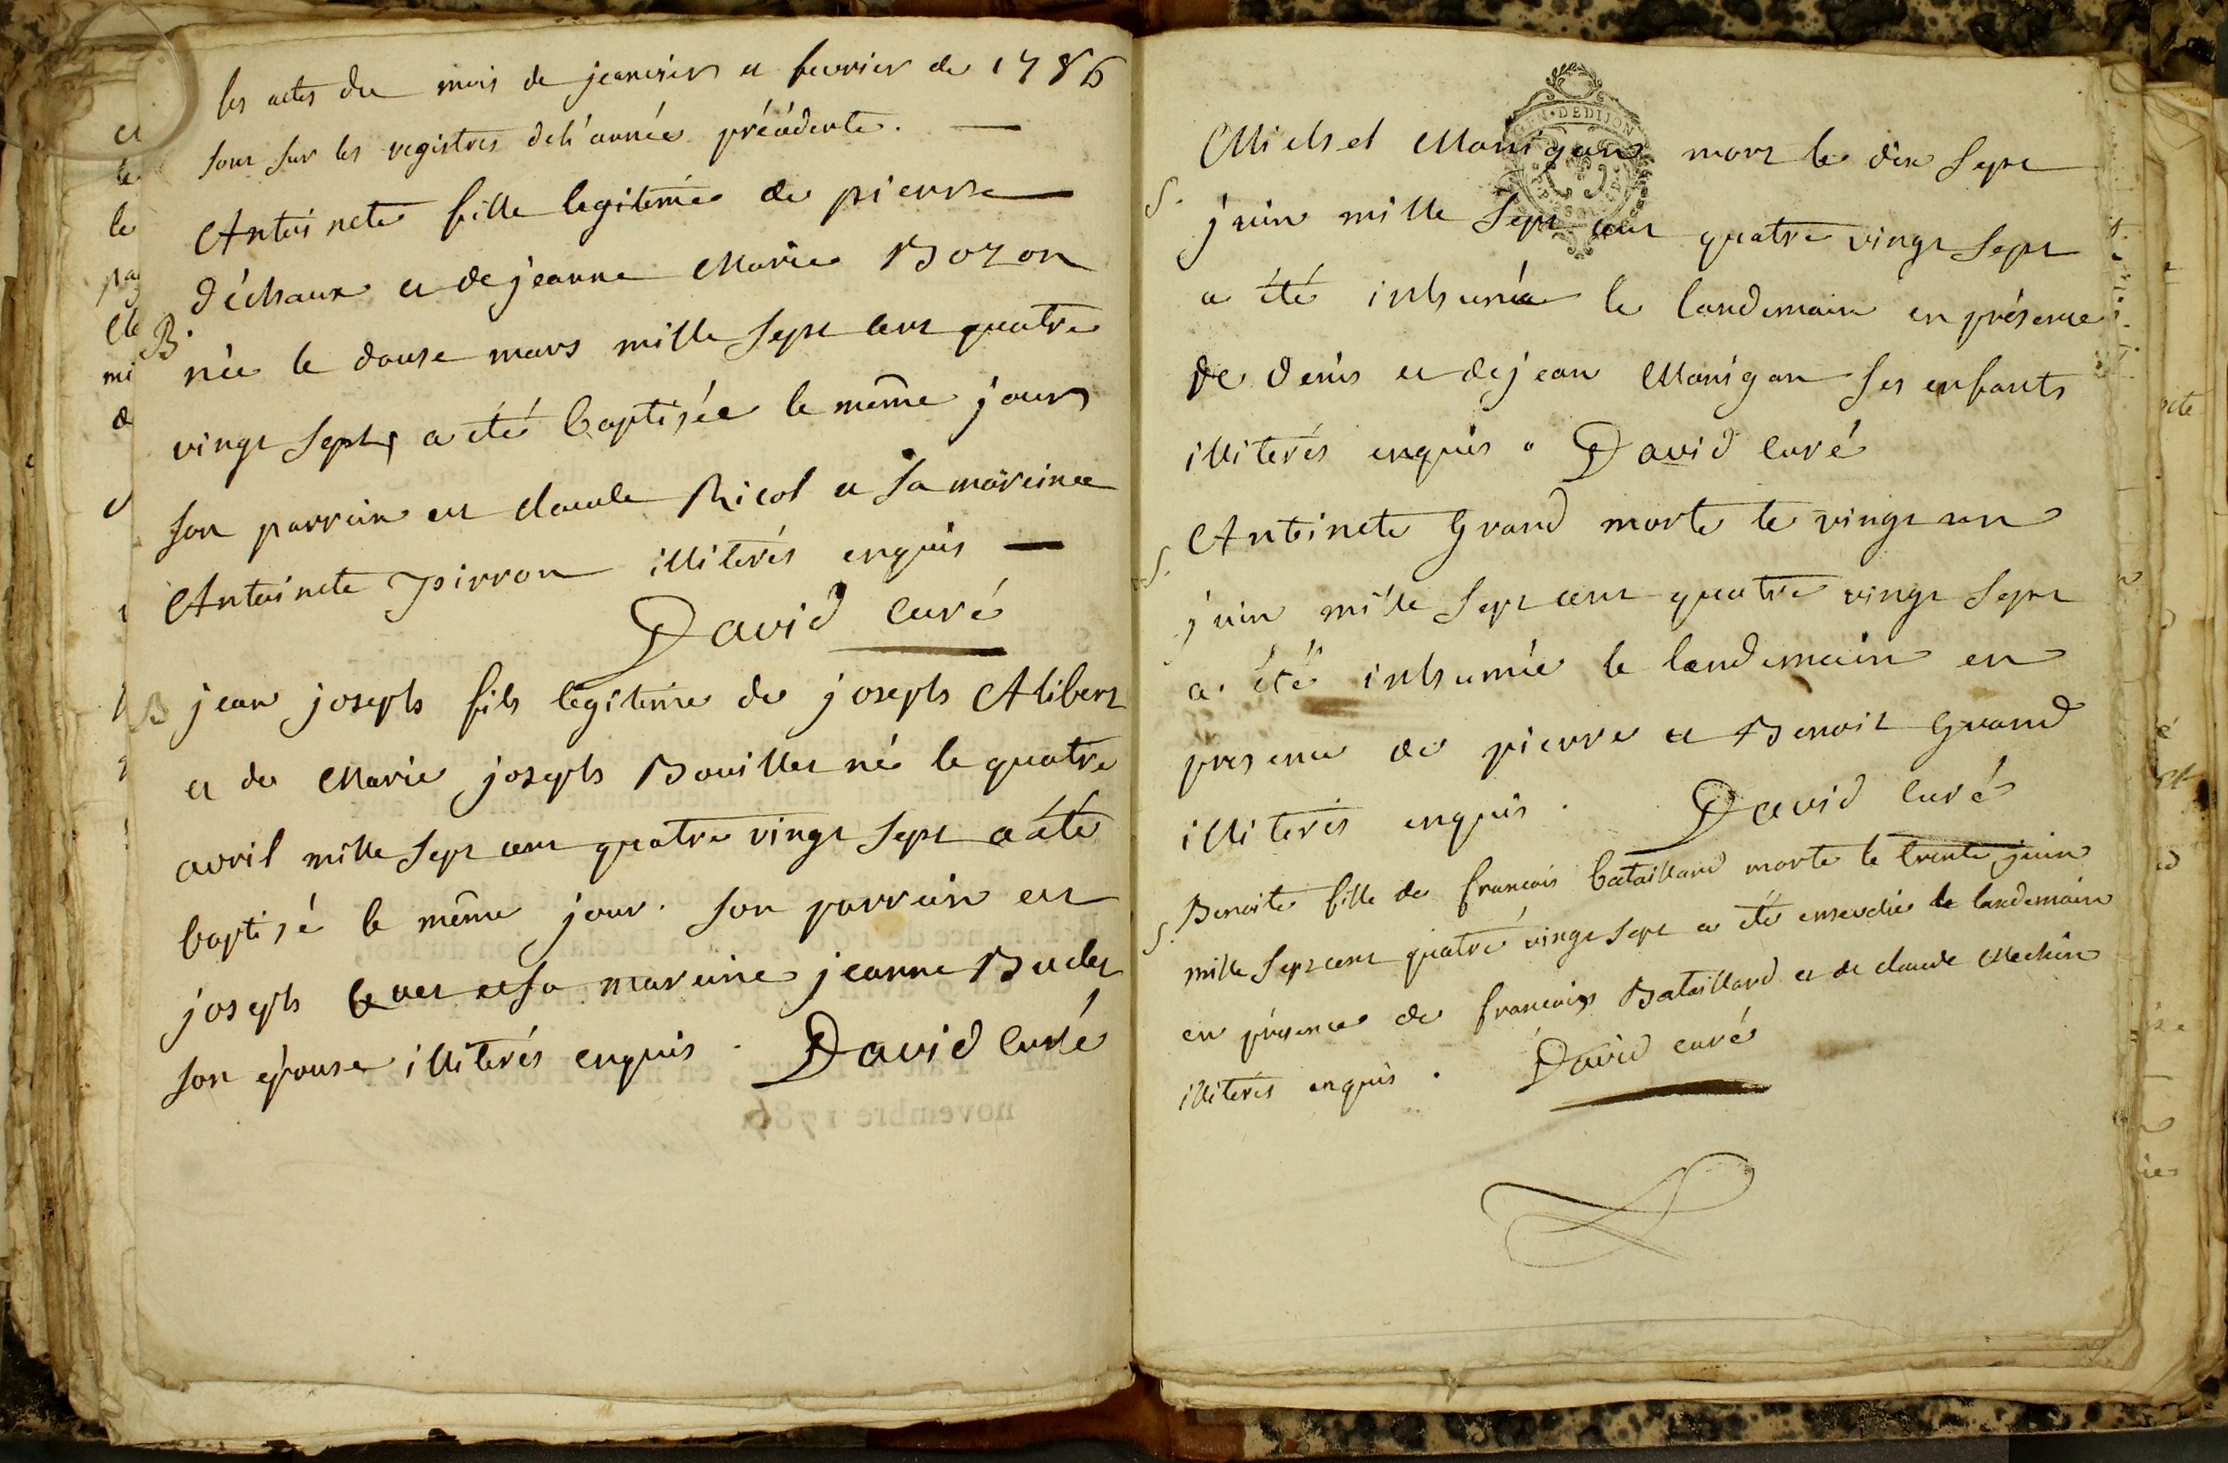 les actes du mois de jeanvier et fevrier de 1786
sont sur les registres de l'année précédente.
Antoinete fille legitime de pierre
déchaux et de jeanne Marie Bozon
B. née le douse mars mille sept cent quatre
vingt sept, a été baptisée le même jour
son parrain est claude Ricol et sa mareine
Antoinete Pirron illiterés enquis
David curé
B jean joseph fils legitime de joseph Alibert
et de Marie joseph Bouillet né le quatre
avril mille sept cent quatre vingt sept a été
baptisé le même jour. son parrain est
joseph et sa mareine jeanne Budet
son épouse illiterés enquis. David curé
novembre 1786
GEN. DE DIJON
Michel Manigan mort le dix sept
S. juin mille sept cent quatre vingt sept
a été inhumé le landemain en présence
de denis et de jean Manigan ses enfants
illiterés enquis. David curé
Antoinete Grand morte le vingt un
S. juin mille sept cent quatre vingt sept
a été inhumée le landemain en
presence de pierre et Benoit Grand
illiterés enquis. David curé
Benoite fille de francois bataillard morte le trente juin
S. mille sept cent quatre vingt sept a été ensevelie le landemain
en présence de francois Bataillard et de claude Mechin
illiterés enquis. David curé